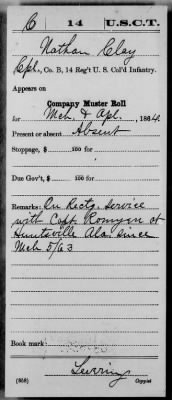 C 14 U.S.C.T.
Nathan Clay
Cpl., Co. B, 14 Reg't U. S. Col'd Infantry.
Appears on
Company Muster Roll
for Mch & Apl., 1864.
Present or absent Absent
Stoppage, $ 100 for
Due Gov't, $ 100 for
Remarks: On Rectg. service
with Capt. Romeyn at
Huntsville Ala. since
Mch 5/63
Book mark:
(858) Copyist